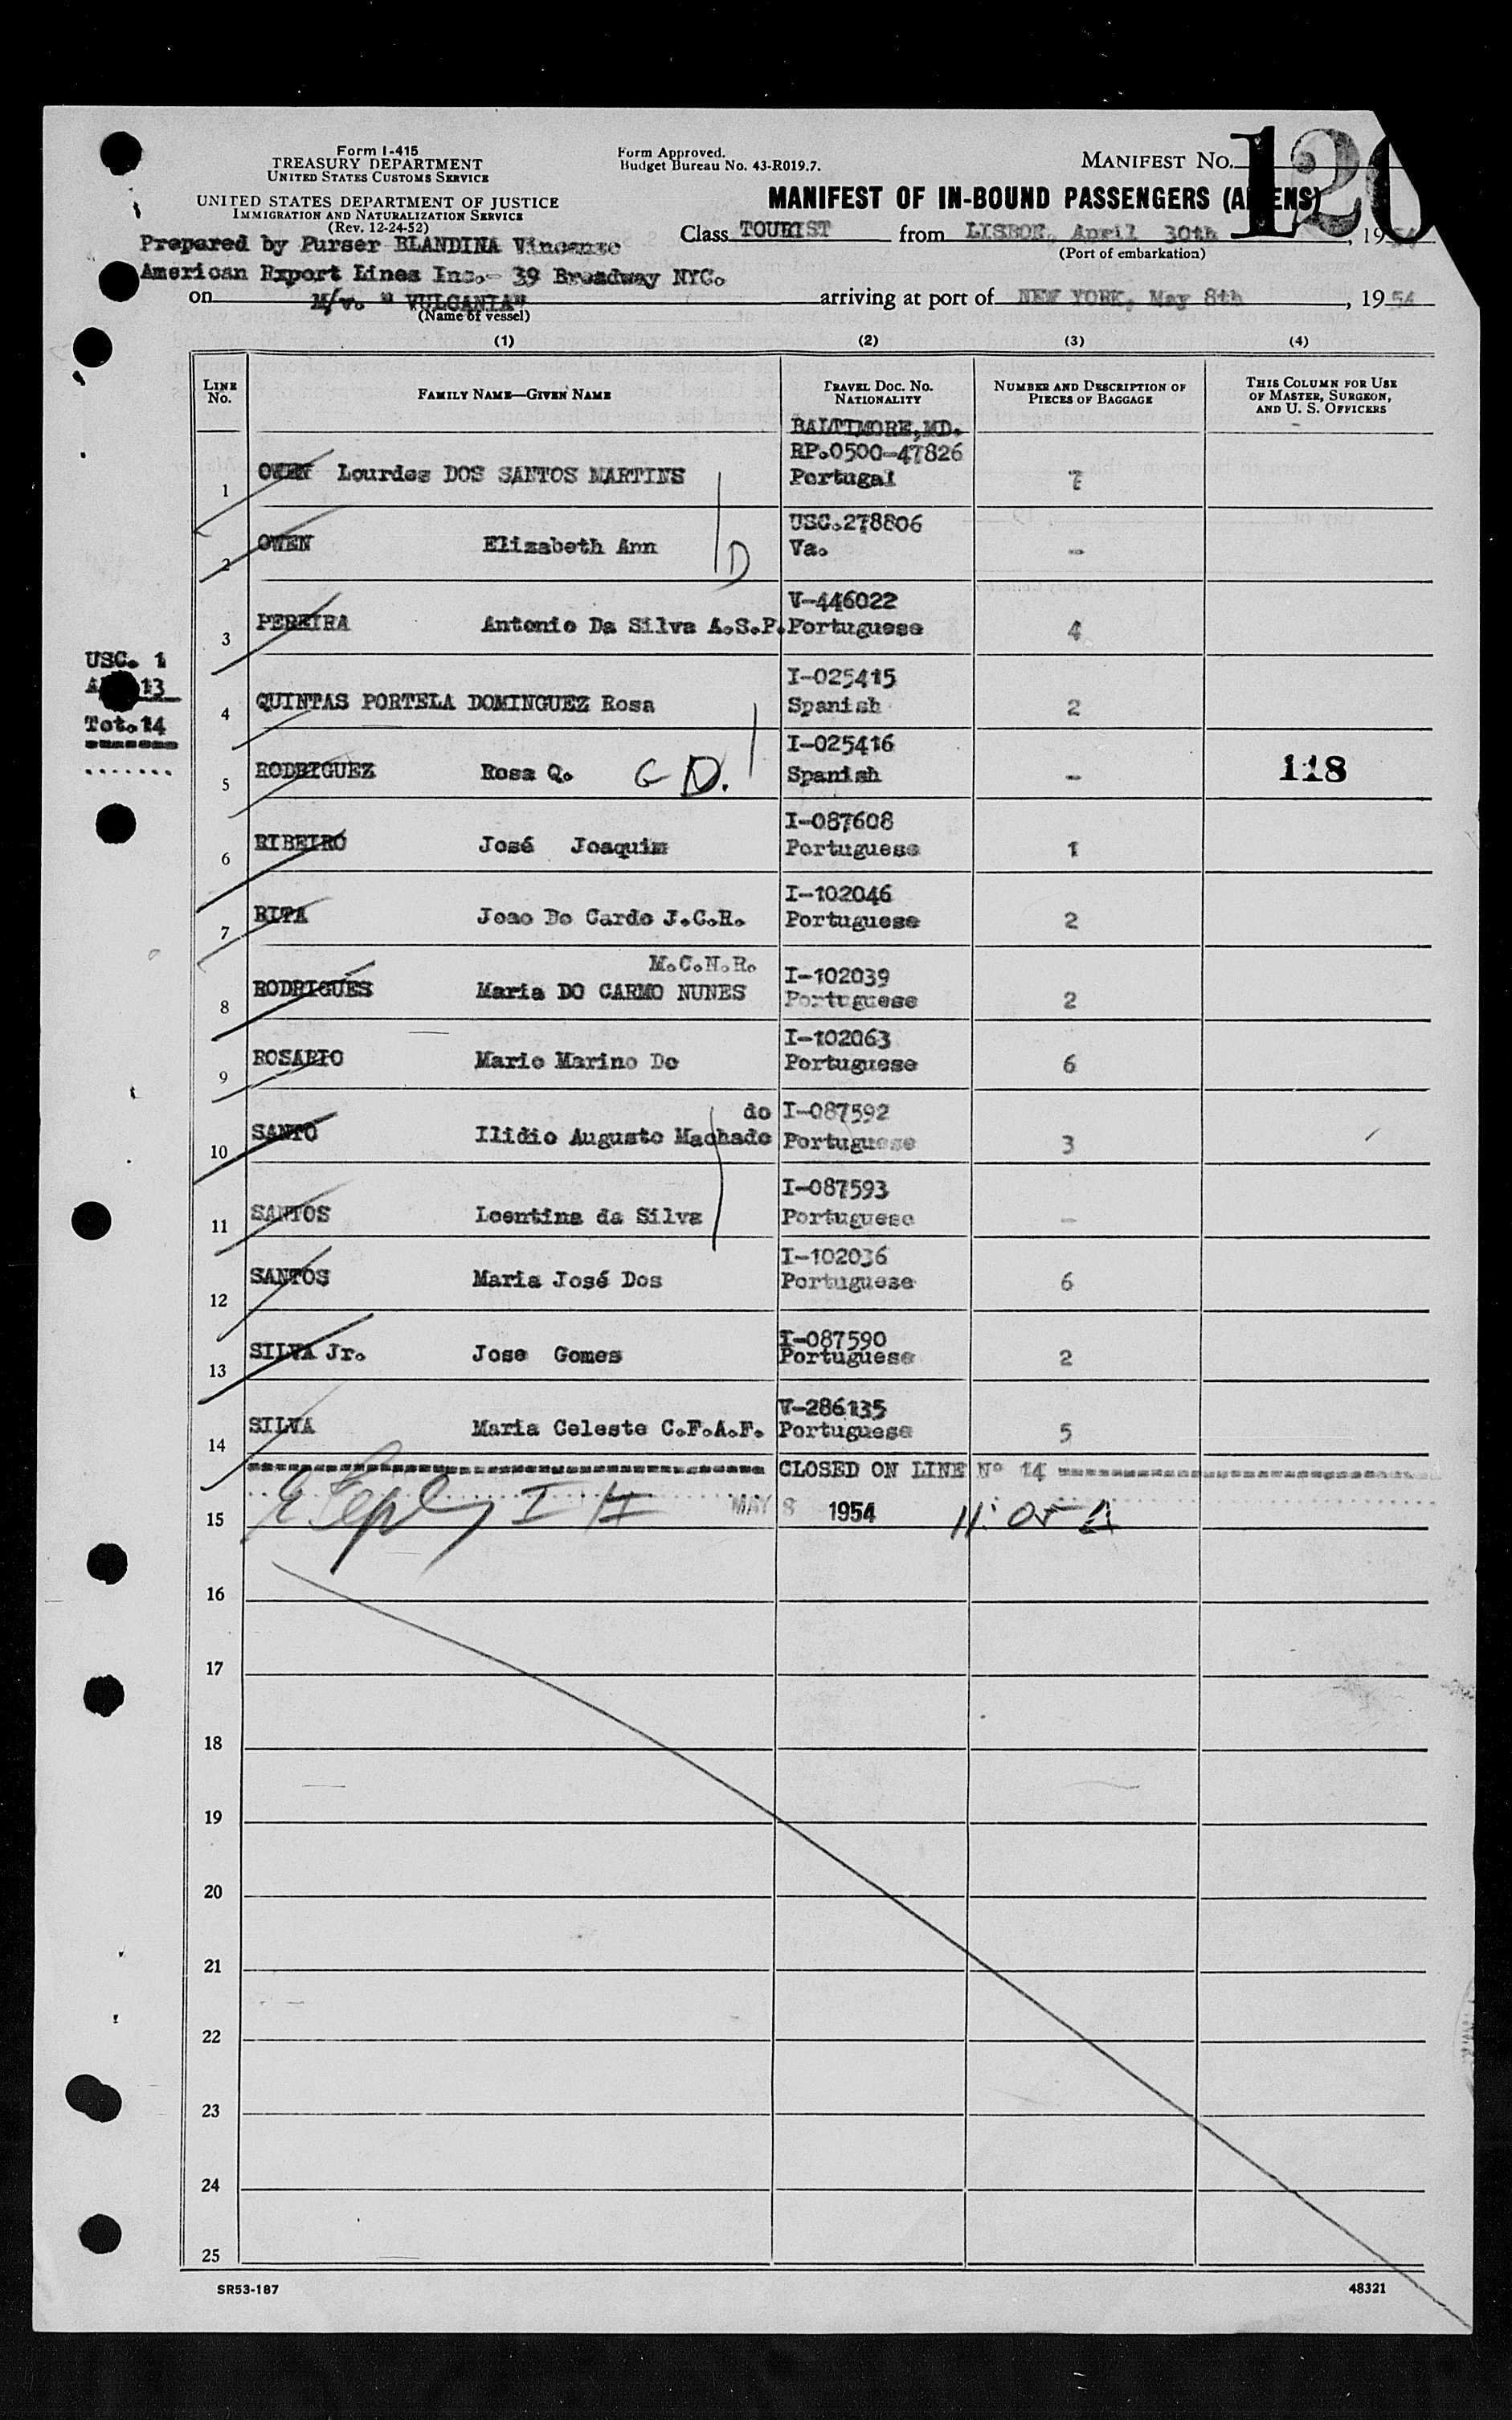 Form I-415
TREASURY DEPARTMENT
UNITED STATES CUSTOMS SERVICE
UNITED STATES DEPARTMENT OF JUSTICE
IMMIGRATION AND NATURALIZATION SERVICE
(Rev. 12-24-52)
Form Approved.
Budget Bureau No. 43-R019.7.
MANIFEST NO. 120
MANIFEST OF IN-BOUND PASSENGERS (ALIENS)
Prepared by Purser BLANDINA Vincenzo
Class TOURIST from LISBON, April 30th, 1954
(Port of embarkation)
American Export Lines Inc.- 39 Broadway NYC.
on M/v. " VULCANIA" arriving at port of NEW YORK, May 8th, 1954
(Name of vessel)
(1) (2) (3) (4)
LINE NO. FAMILY NAME—GIVEN NAME TRAVEL DOC. NO. NATIONALITY NUMBER AND DESCRIPTION OF PIECES OF BAGGAGE THIS COLUMN FOR USE OF MASTER, SURGEON, AND U. S. OFFICERS
BALTIMORE,MD.
RP.0500-47826
1 OWEN Lourdes DOS SANTOS MARTINS Portugal 7
USC.278806
2 OWEN Elizabeth Ann D Va. -
V-446022
3 PEREIRA Antonio Da Silva A.S.P. Portuguese 4
USC. 1
13
Tot.14
I-025415
4 QUINTAS PORTELA DOMINGUEZ Rosa Spanish 2
I-025416
5 RODRIGUEZ Rosa Q. G D. Spanish - 118
I-087608
6 RIBEIRO José Joaquim Portuguese 1
I-102046
7 RITA Joao Do Cardo J.C.R. Portuguese 2
M.C.N.R. I-102039
8 RODRIGUES Maria DO CARMO NUNES Portuguese 2
I-102063
9 ROSARIO Mario Marino Do Portuguese 6
do I-087592
10 SANTO Ilidio Augusto Machado Portuguese 3
I-087593
11 SANTOS Leentina da Silva Portuguese -
I-102036
12 SANTOS Maria José Dos Portuguese 6
I-087590
13 SILVA Jr. Jose Gomes Portuguese 2
V-286135
14 SILVA Maria Celeste C.F.A.F. Portuguese 5
CLOSED ON LINE Nº 14
15 MAY 8 1954
16
17
18
19
20
21
22
23
24
25
SR53-187 48321